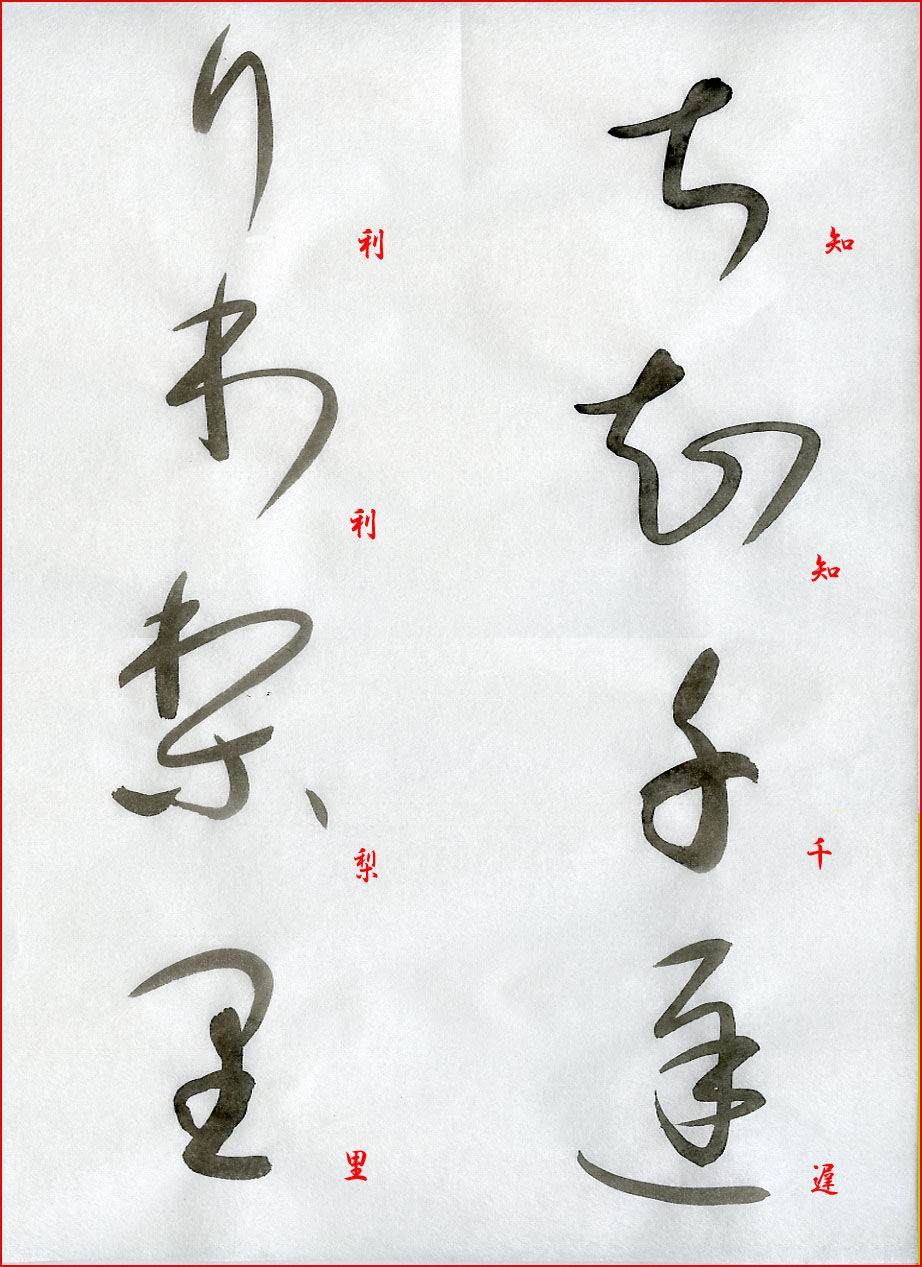 ち
知
知
知
千
千
遅
遅
り
利
利
利
梨
梨
里
里